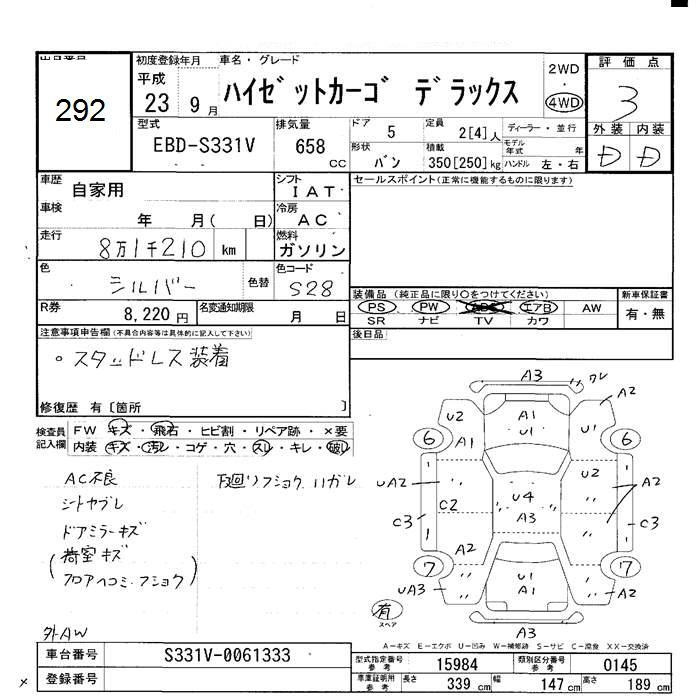 出品番号
292
初度登録年月
平成
23 9月
車名・グレード
ハイゼットカーゴ デラックス
2WD
・
4WD
評価点
3
型式
EBD-S331V
排気量
658 cc
ドア
5
定員
2[4]人
ディーラー・並行
形状
バン
積載
350[250]kg
モデル年式 年
ハンドル 左・右
外装 内装
D D
車歴
自家用
シフト
IAT
セールスポイント(正常に機能するものに限ります)
車検
年 月( 日)
冷房
AC
走行
8万1千210 km
燃料
ガソリン
色
シルバー
色替
色コード
S28
R券
8,220円
名変通知期限
月 日
装備品(純正品に限り○をつけてください)
PS PW ABS エアB AW
SR ナビ TV カワ
新車保証書
有・無
後日品
注意事項申告欄(不具合内容等は具体的に記入して下さい)
○スタッドレス装着
修復歴 有〔箇所 〕
検査員記入欄
FW キズ・飛石・ヒビ割・リペア跡・×要
内装 キズ・汚レ・コゲ・穴・スレ・キレ・破レ
AC不良
シートヤブレ
ドアミラーキズ
(荷室キズ
フロアヘコミ・フショク)
下廻りフショク、ハガレ
外AW
A3
ワレ
U2 A1 A2
A1 U1
6 6
UA2 U2 A2
C3 C2 U4 C3
A3
A2
7 7
UA3 U1 A2
A1
A3
有
スペア
A－キズ E－エクボ U－凹み W－補修跡 S－サビ C－腐食 XX－交換済
車台番号
S331V-0061333
登録番号
型式指定番号 参考
15984
類別区分番号 参考
0145
車庫証明用 参考
長さ 339 cm
幅 147 cm
高さ 189 cm